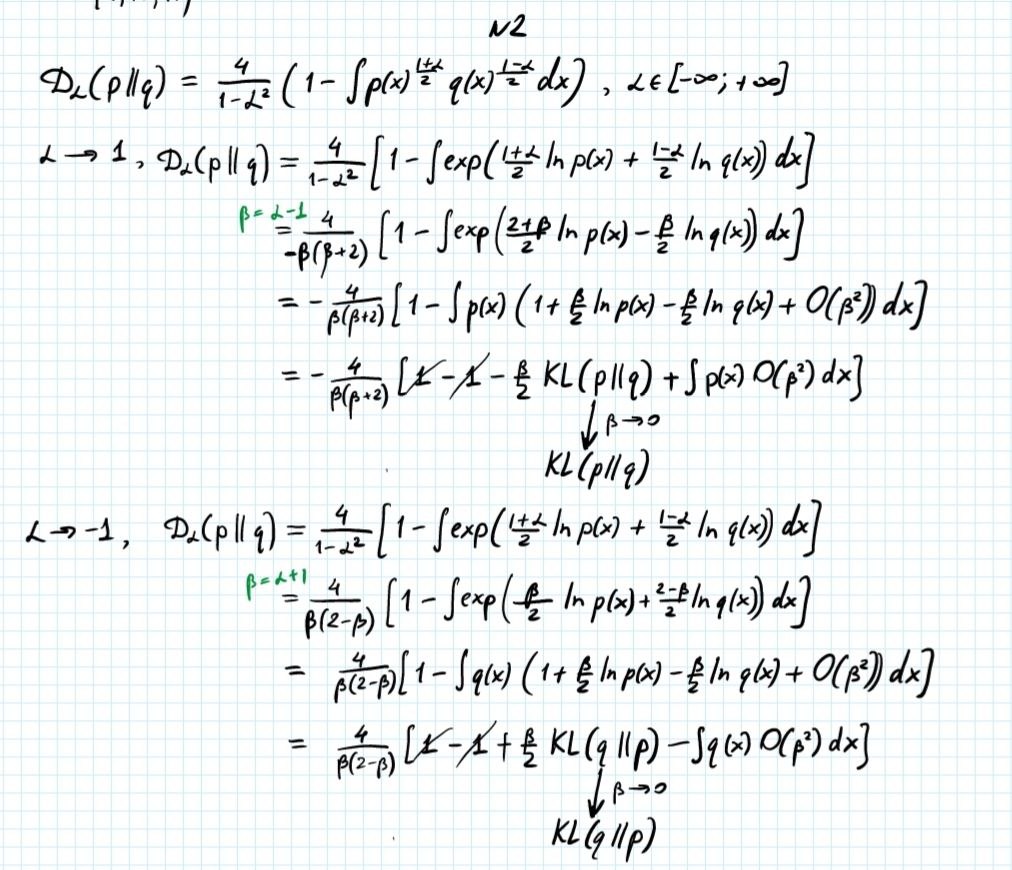 N2
D_α(p||q) = 4/(1-α²) (1 - ∫p(x)^((1+α)/2) q(x)^((1-α)/2) dx), α∈[-∞; +∞]
α → 1, D_α(p||q) = 4/(1-α²) [1 - ∫exp((1+α)/2 ln p(x) + (1-α)/2 ln q(x)) dx]
β = α-1
= 4/(-β(β+2)) [1 - ∫exp((2+β)/2 ln p(x) - β/2 ln q(x)) dx]
= - 4/(β(β+2)) [1 - ∫p(x) (1 + β/2 ln p(x) - β/2 ln q(x) + O(β²)) dx]
= - 4/(β(β+2)) [1 - 1 - β/2 KL(p||q) + ∫p(x) O(β²) dx]
↓ β→0
KL(p||q)
α → -1, D_α(p||q) = 4/(1-α²) [1 - ∫exp((1+α)/2 ln p(x) + (1-α)/2 ln q(x)) dx]
β = α+1
= 4/(β(2-β)) [1 - ∫exp(β/2 ln p(x) + (2-β)/2 ln q(x)) dx]
= 4/(β(2-β)) [1 - ∫q(x) (1 + β/2 ln p(x) - β/2 ln q(x) + O(β²)) dx]
= 4/(β(2-β)) [1 - 1 + β/2 KL(q||p) - ∫q(x) O(β²) dx]
↓ β→0
KL(q||p)